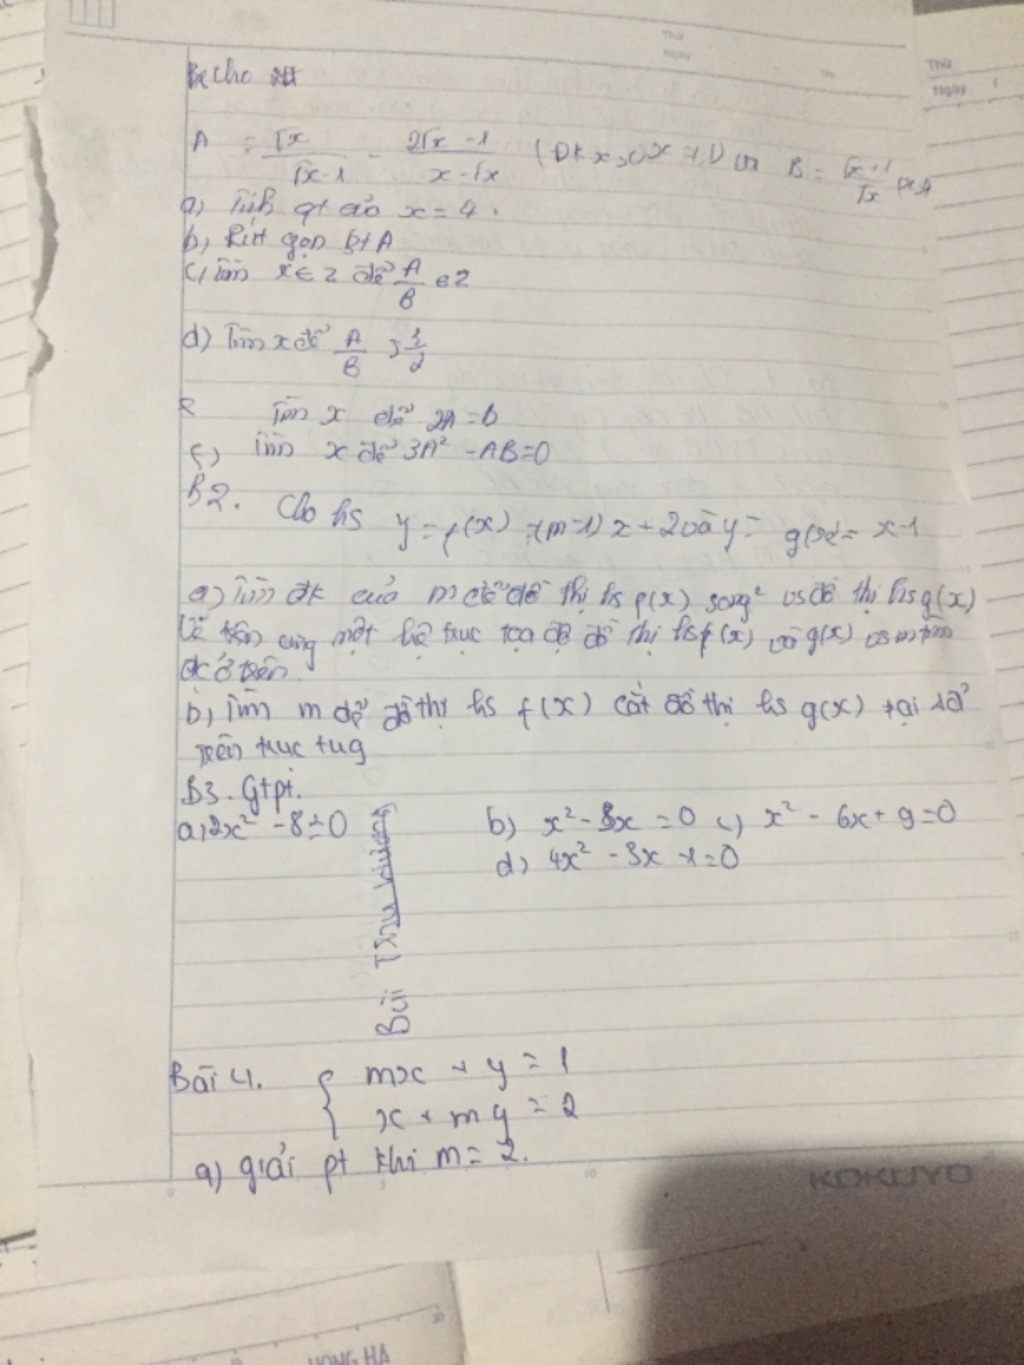 Thứ
Ngày
Thứ
Ngày
B1: Cho
A = √x/(√x-1) - (2√x-1)/(x-√x) (ĐK x>0, x≠1) và B =
a) Tính gt của x = 4.
b) Rút gọn bt A
c) Tìm x∈Z để A/B ∈Z
d) Tìm x để A/B > 1/2
Tìm x để 2A = b
f) Tìm x để 3A² - AB=0
B2. Cho hs y = f(x) =(m-1)x + 2 và y = g(x) = x-1
a) Tìm đk của m để đồ thị hs f(x) song² vs đồ thị hs g(x)
Vẽ trên cùng một hệ trục tọa độ đồ thị hs f(x) và g(x) vs m tìm
đc ở trên.
b, Tìm m để đồ thị hs f(x) cắt đồ thị hs g(x) tại 1 đ'
trên trục tug
B3. Gtpt.
a, 2x² - 8 = 0 b) x² - 3x = 0 c) x² - 6x + 9 = 0
d) 4x² - 3x -1=0
Bùi
Bài 4. { mx + y = 1
x + my = 2
a) giải pt khi m = 2.
KOKUYO
HONG HA